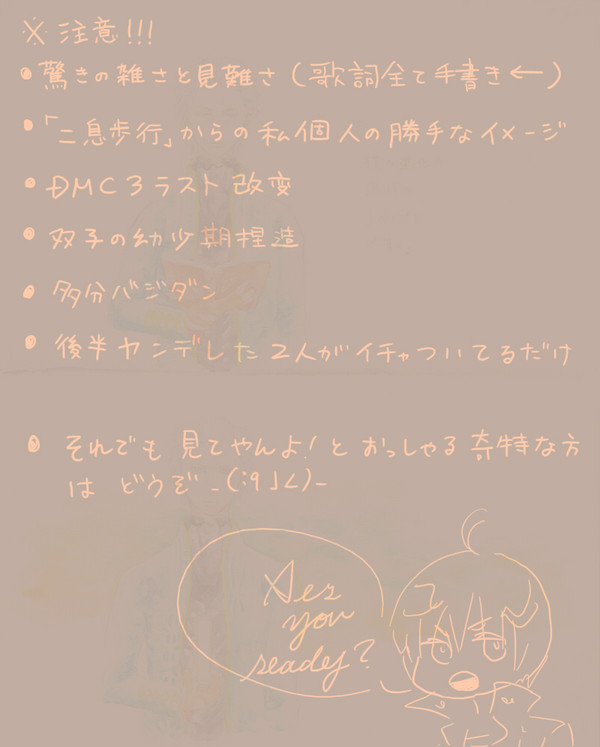 ※注意!!!
●驚きの雑さと見難さ(歌詞全て手書き←)
●「二息歩行」からの私個人の勝手なイメージ
●DMC3ラスト改変
●双子の幼少期捏造
●多分バジダン
●後半ヤンデレした2人がイチャついてるだけ
●それでも見てやんよ!とおっしゃる奇特な方
はどうぞ_(:9」∠)_
Aer
you
ready?